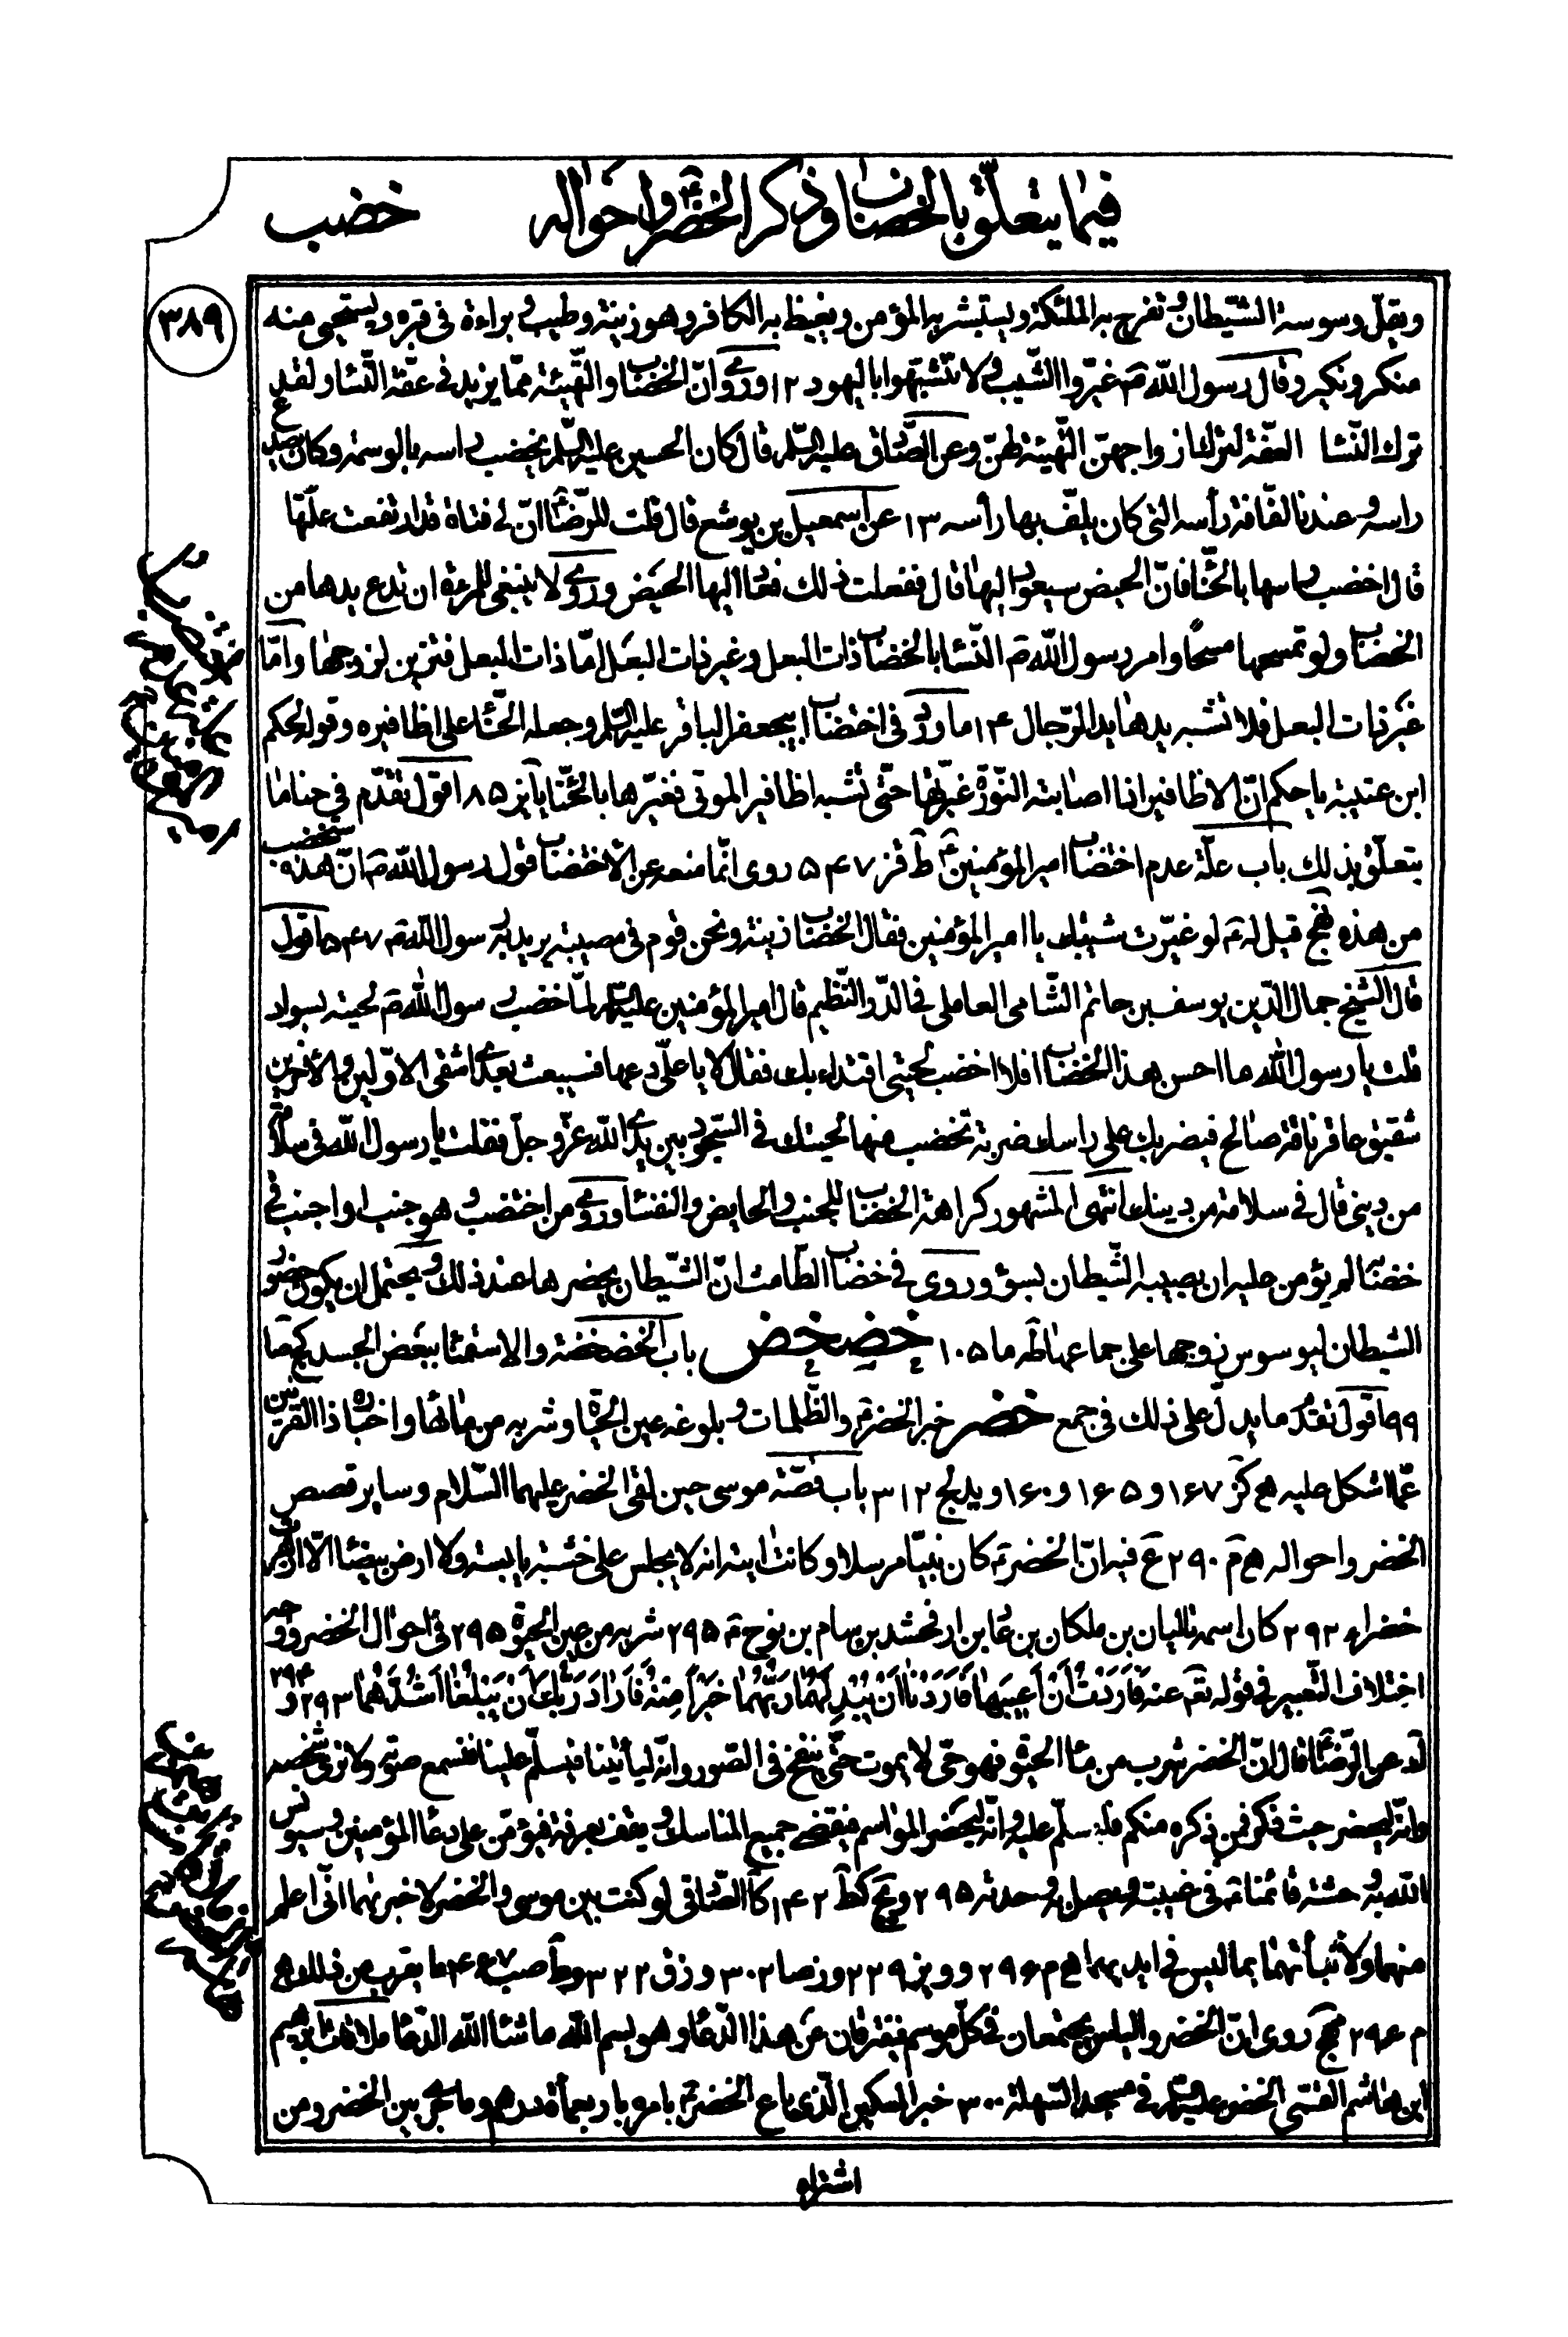 فيما يتعلّق بالخضاب وذكر الخضر واحواله
خضب
٣٨٩
ويقلّ وسوسة الشيطان وتفرح به الملئكة ويستبشر به المؤمن ويغيظ به الكافر وهو زينة وطيب وبراءة فى قبره ويستحيى منه
منكر ونكير وقال رسول الله ص غيّروا الشيب ولا تتشبّهوا باليهود ١٢ وروى وانّ الخضاب والتهيئة ممّا يزيد فى عفّة النساء ولقد
ترك النساء العفّة لترك ازواجهنّ التهيئة لهنّ وعن الصادق عليه السلم قال كان الحسين عليه السلم يخضب راسه بالوسمة وكان يصدع
راسه وعندنا لفّافة رأسه التى كان يلفّ بها رأسه ١٣ عن اسمعيل بن يوشع قال قلت للرّضا انّ لى فتاة قد ارتفعت علّتها
قال اخضب راسها بالحنّا فانّ الحيض سيعود اليها قال ففعلت ذلك فعاد اليها الحيض وروى لا ينبغى للمرئة ان تدع يدها من
الخضاب ولو تمسحها مسحًا وامر رسول الله ص النساء بالخضاب ذات البعل وغير ذات البعل امّا ذات البعل فتزين لزوجها وامّا
غير ذات البعل فلا تشبه يدها يد الرّجال ١٤ ما ورد فى اختضاب ابيجعفر الباقر عليه السلم وجعله الحنّاء على اظافيره وقوله لحكم
ابن عتيبة يا حكم انّ الاظافير اذا اصابته النّورة غيّرتها حتّى تشبه اظافير الموتى فغيّرها بالحنّا يا يز ٨٥ اقول تقدّم فى حنا ما
يتعلّق بذلك باب علّة عدم اختضاب امير المؤمنين ع ط قز ٥٤٧ روى انّما منعه عن الاختضاب قول رسول الله ص انّ هذه ستخضب
من هذه نهج قيل له ع لو غيّرت شيبك يا امير المؤمنين فقال الخضاب زينة ونحن قوم فى مصيبة يريد به رسول الله ص ٥٤٧ اقول
قال الشيخ جمال الدّين يوسف بن حاتم الشّامى العاملى فى الدّر النّظيم قال امير المؤمنين عليه السلم لمّا خضب رسول الله ص لحيته بسواد
قلت يا رسول الله ما احسن هذا الخضاب افلا اخضب لحيتى اقتداء بك فقال لا يا علىّ دعها فسيبعث بعدى اشقى الاوّلين والآخرين
شقيق عاقر ناقة صالح فيضربك على راسك ضربة تخضب منها لحيتك فى السّجود بين يدى الله عزّ وجلّ فقلت يا رسول الله فى سلامة
من دينى قال فى سلامة من دينك انتهى المشهور كراهة الخضاب للجنب والحايض والنفساء وروى من اختضب وهو جنب او اجنب فى
خضابه لم يؤمن عليه ان يصيبه الشّيطان بسؤ وروى فى خضاب الطّامث انّ الشّيطان يحضرها عند ذلك ويحتمل ان يكون حضور
الشيطان ليوسوس زوجها على جماعها طه ما ١٠٥ خضخض باب الخضخضة والاستمناء ببعض الجسد كج صا
٩٩ اقول تقدّم ما يدلّ على ذلك فى جمع خضر خبر الخضر ع والظّلمات وبلوغه عين الحيوة وشربه من مائها واخباره ذا القرنين
عمّا اشكل عليه ه كز ١٦٧ و١٦٥ و١٦٠ ويد لج ٣١٢ باب قصّة موسى حين لقى الخضر عليهما السّلام وساير قصص
الخضر واحواله ه م ٢٩٠ ع فيه انّ الخضر ع كان نبيّا مرسلا وكانت ايته انه لا يجلس على خشبة يابسة ولا ارض بيضاء الّا ازهرت
خضراء ٢٩٣ كان اسمه تاليان بن ملكان بن عابر بن ارفخشد بن سام بن نوح ع ٢٩٥ شربه من عين الحيوة ٢٩٥ فى احوال الخضر ووجه
اختلاف التّعبير فى قوله تع عنه فَاَرَدْتُ اَنْ اَعيبَها فَاَرَدْنا اَنْ يُبْدِلَهُما رَبُّهُما خَيْرًا مِنْهُ فَاَرادَ رَبُّكَ اَنْ يَبْلُغا اَشُدَّهُما ٢٩٣ و٢٩٤
عن الرّضا قال انّ الخضر شرب من ماء الحيوة فهو حىّ لا يموت حتّى ينفخ فى الصّور وانّه ليأتينا فيسلّم علينا فنسمع صوته ولا نرى شخصه
وانّه ليحضر حيث ذكر فمن ذكره منكم فليسلّم عليه وانّه ليحضر المواسم فيقضى جميع المناسك ويقف بعرفة فيؤمّن على دعاء المؤمنين وسيونس
الله به وحشة قائمنا ع فى غيبته ويصل به وحدته ٢٩٥ ويج كط ١٤٢ كا الصّادقى لو كنت بين موسى والخضر لاخبرتهما انّى اعلم
منهما ولأنبأتهما بما ليس فى ايديهما ه م ٢٩٦ و
م ٢٩٦ مج روى انّ الخضر والياس يجتمعان فى كلّ موسم يفترقان عن هذا الدّعاء وهو بسم الله ما شاء الله الدّعا ملاقات ابراهيم
ابن هاشم القمّى الخضر عليه السلم فى مسجد السّهلة ٣٠٠ خبر المسكين الّذى باع الخضر ع بامره باربعمأة درهم وما جرى بين الخضر ومن
اشتراه